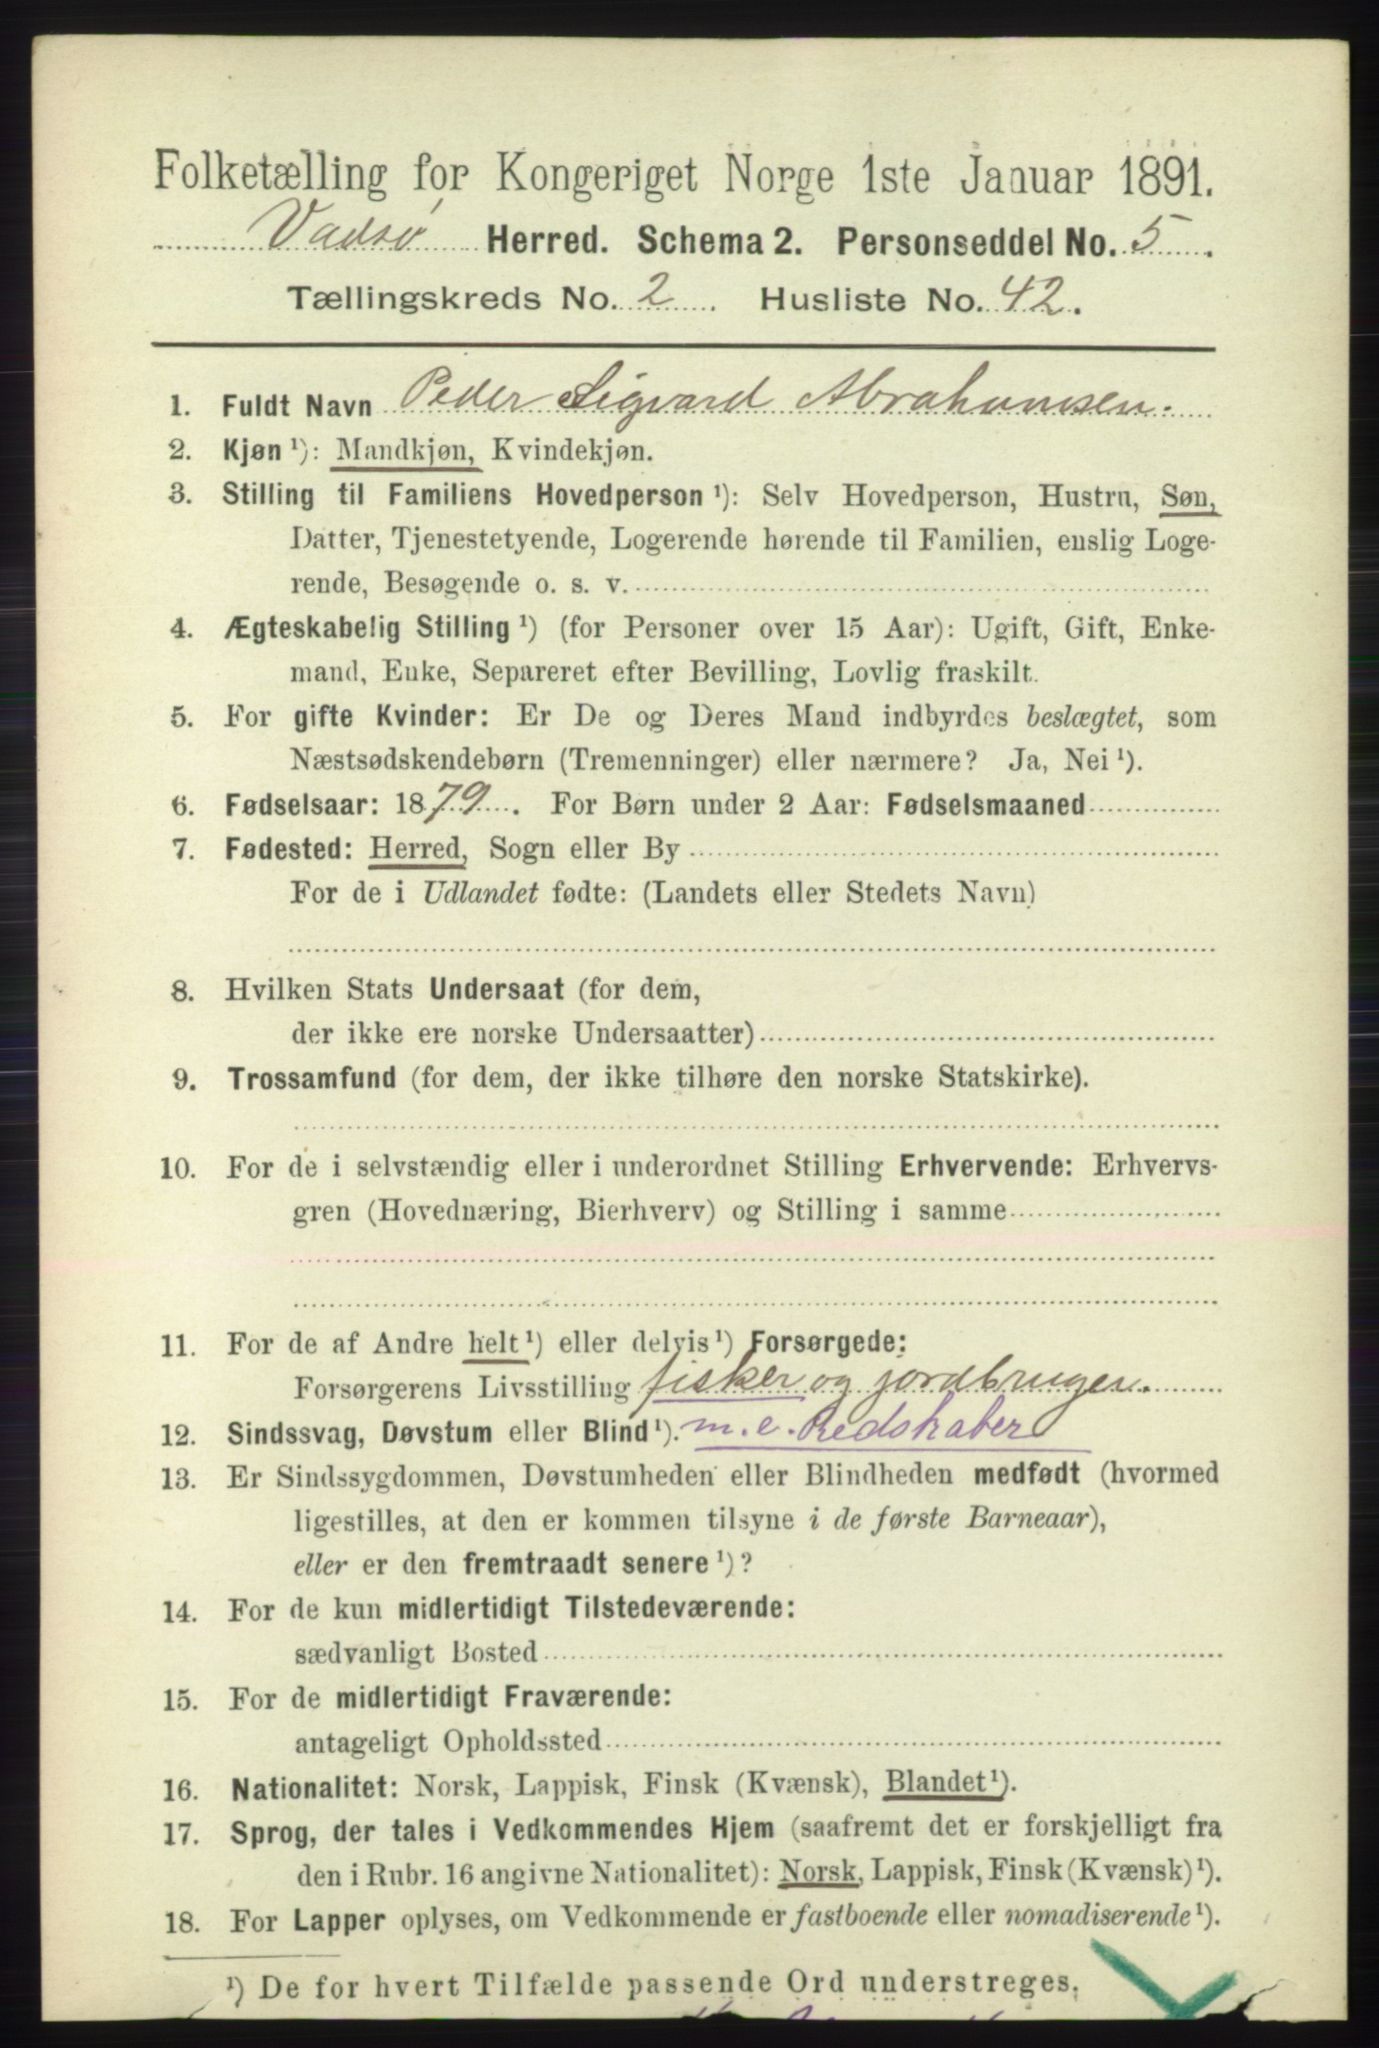 Folketælling for Kongeriget Norge 1ste Januar 1891.
Vadsø Herred. Schema 2. Personseddel No. 5.
Tællingskreds No. 2. Husliste No. 42.
1. Fuldt Navn Peder Sigvard Abrahamsen.
2. Kjøn ¹): Mandkjøn, Kvindekjøn.
3. Stilling til Familiens Hovedperson ¹): Selv Hovedperson, Hustru, Søn,
Datter, Tjenestetyende, Logerende hørende til Familien, enslig Loge-
rende, Besøgende o. s. v.
4. Ægteskabelig Stilling ¹) (for Personer over 15 Aar): Ugift, Gift, Enke-
mand, Enke, Separeret efter Bevilling, Lovlig fraskilt.
5. For gifte Kvinder: Er De og Deres Mand indbyrdes beslægtet, som
Næstsødskendebørn (Tremenninger) eller nærmere? Ja, Nei ¹).
6. Fødselsaar: 1879. For Børn under 2 Aar: Fødselsmaaned
7. Fødested: Herred, Sogn eller By
For de i Udlandet fødte: (Landets eller Stedets Navn)
8. Hvilken Stats Undersaat (for dem,
der ikke ere norske Undersaatter)
9. Trossamfund (for dem, der ikke tilhøre den norske Statskirke).
10. For de i selvstændig eller i underordnet Stilling Erhvervende: Erhvervs-
gren (Hovednæring, Bierhverv) og Stilling i samme
11. For de af Andre helt ¹) eller delvis ¹) Forsørgede:
Forsørgerens Livsstilling fisker og jordbruger.
12. Sindssvag, Døvstum eller Blind ¹). m. e. Redskaber
13. Er Sindssygdommen, Døvstumheden eller Blindheden medfødt (hvormed
ligestilles, at den er kommen tilsyne i de første Barneaar),
eller er den fremtraadt senere ¹)?
14. For de kun midlertidigt Tilstedeværende:
sædvanligt Bosted
15. For de midlertidigt Fraværende:
antageligt Opholdssted
16. Nationalitet: Norsk, Lappisk, Finsk (Kvænsk), Blandet ¹).
17. Sprog, der tales i Vedkommendes Hjem (saafremt det er forskjelligt fra
den i Rubr. 16 angivne Nationalitet): Norsk, Lappisk, Finsk (Kvænsk) ¹).
18. For Lapper oplyses, om Vedkommende er fastboende eller nomadiserende ¹).
¹) De for hvert Tilfælde passende Ord understreges.